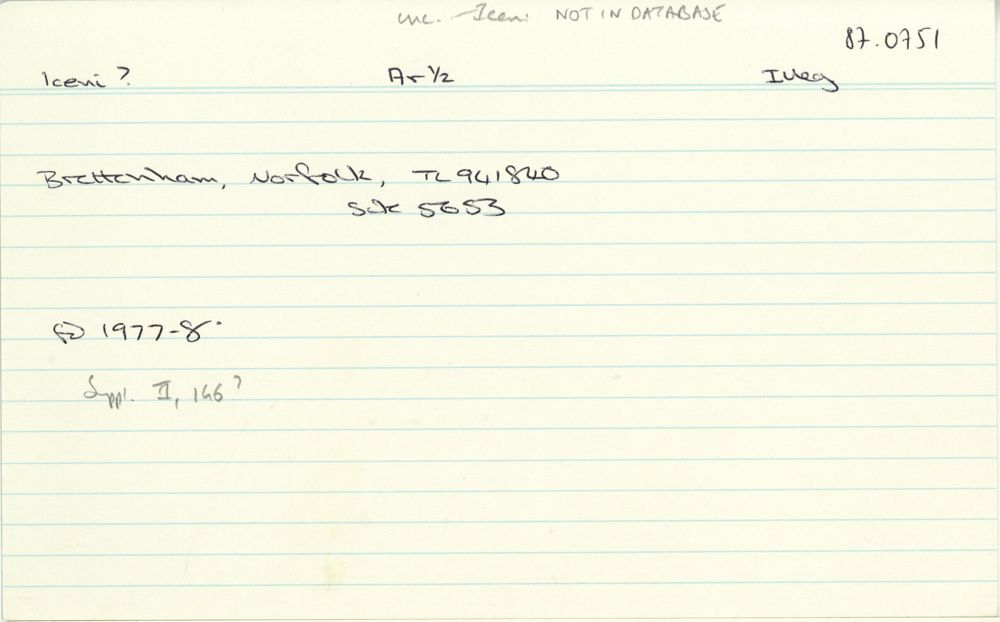 unc. - Iceni NOT IN DATABASE
87.0751
Iceni ? Ar ½ Illeg
Brettenham, Norfolk, TL 941840
Site 5653
fd 1977-8.
Suppl. II, 166?